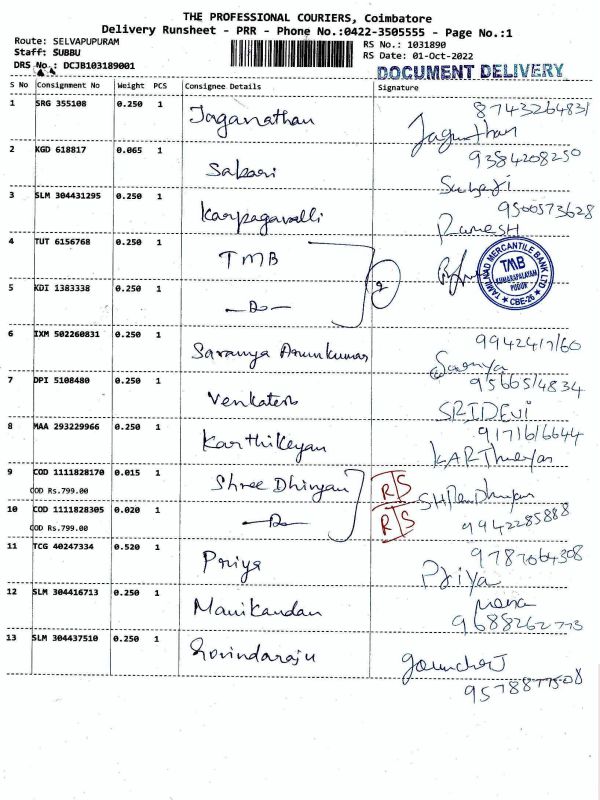 THE PROFESSIONAL COURIERS, Coimbatore
Delivery Runsheet - PRR - Phone No.:0422-3505555 - Page No.:1
Route: SELVAPUPURAM
Staff: SUBBU
DRS No.: DCJB103189001
RS No.: 1031890
RS Date: 01-Oct-2022
DOCUMENT DELIVERY
S No Consignment No Weight PCS Consignee Details Signature
1 SRG 355108 0.250 1 Jaganathan 8743264831
2 KGD 618817 0.065 1 Sabari 9384208250
3 SLM 304431295 0.250 1 Karpagavalli 9500573628
RAMESH
4 TUT 6156768 0.250 1 TMB
TAMILNAD MERCANTILE BANK LTD
TMB
KUMARAPALAYAM
PUDUR
CBE-26
5 KDI 1383338 0.250 1 -Do-
6 IXM 502260831 0.250 1 Saranya Arunkumar
Saranya
7 DPI 5108480 0.250 1 Venkatesh
SRIDEVI
8 MAA 293229966 0.250 1 Karthikeyan 9171616644
9 COD 1111828170 0.015 1 Shree Dhinyan R/S
COD Rs.799.00
10 COD 1111828305 0.020 1 -Do- R/S 9942285888
COD Rs.799.00
11 TCG 40247334 0.520 1 Priya 9787064308
Priya
12 SLM 304416713 0.250 1 Manikandan mana
9688262773
13 SLM 304437510 0.250 1 Govindaraju
9578877508